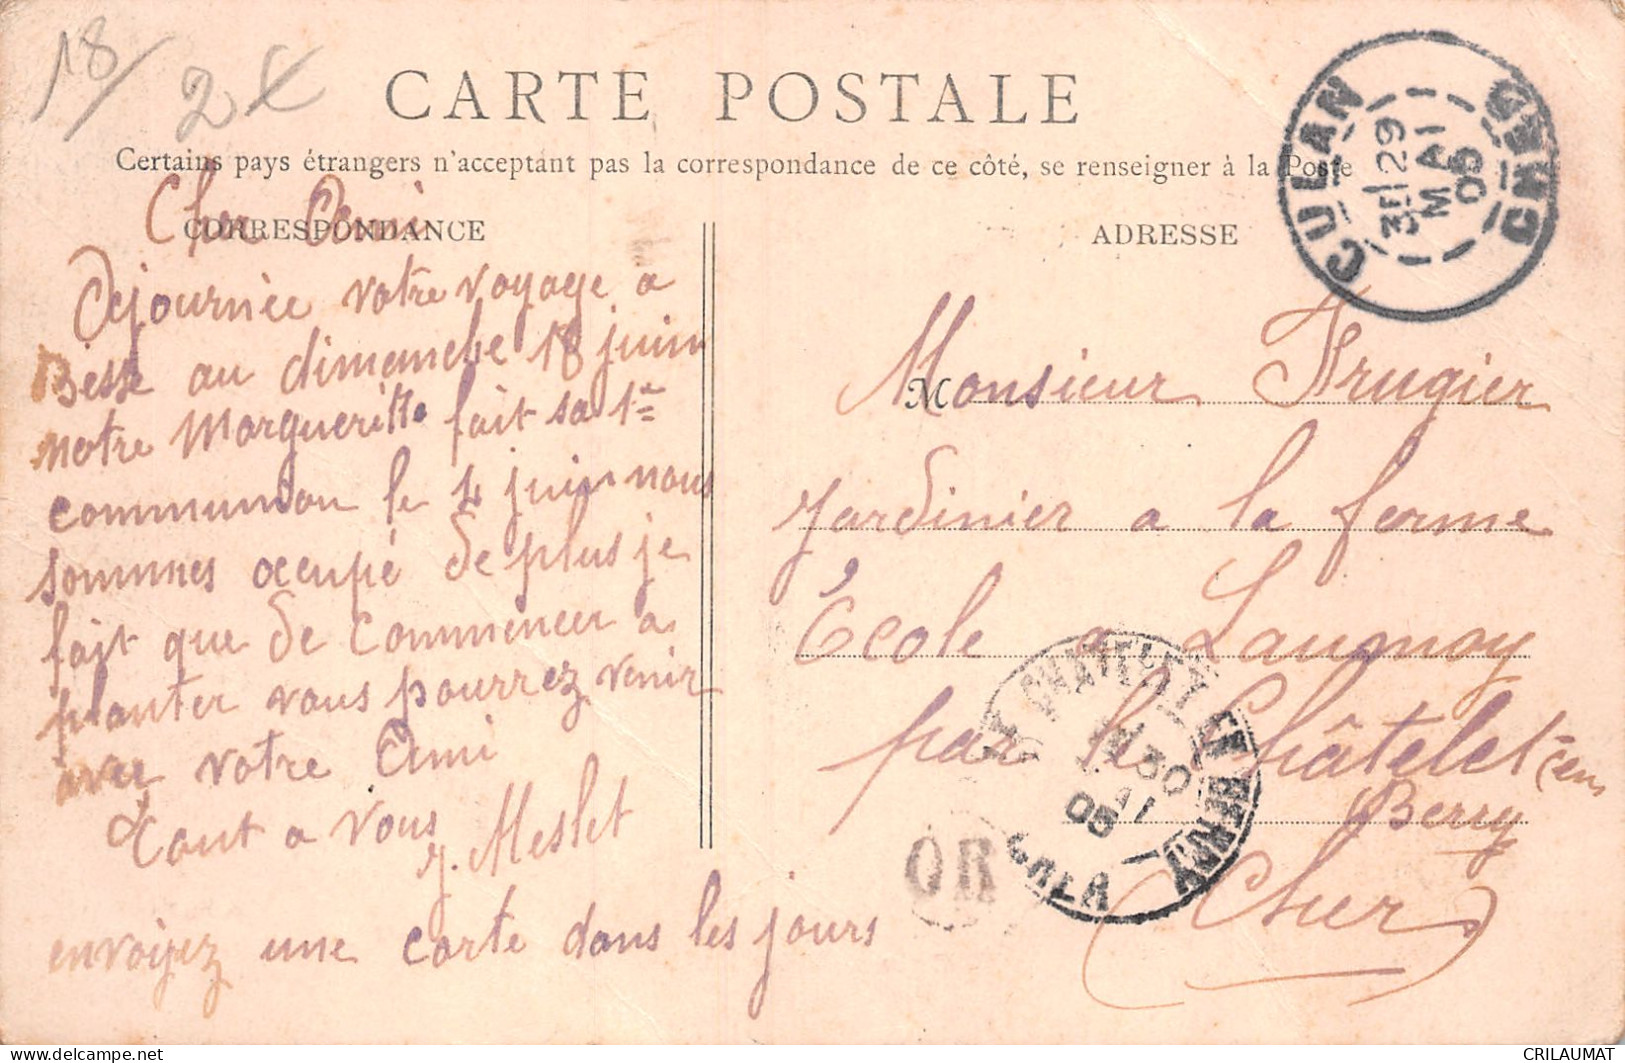 18
2€
CARTE POSTALE
Certains pays étrangers n'acceptant pas la correspondance de ce côté, se renseigner à la Poste
CORRESPONDANCE
Cher Ami
Dejournée votre voyage a
Besse au dimanche 18 juin
notre Margueritte fait sa 1re
communion le 4 juin nous
sommes occupé de plus je
fait que de commencer a
planter vous pourrez venir
avec votre Ami
Tout a vous
J. Meslet
envoiyez une carte dans les jours
ADRESSE
Monsieur Frugier
jardinier a la ferme
École a Launoy
par le Châtelet-en
Berry
(Cher)
CULAN CHER
3E 29
MAI
05
LE CHATELET EN BERRY
CHER
30
05
OR
www.delcampe.net
CRILAUMAT